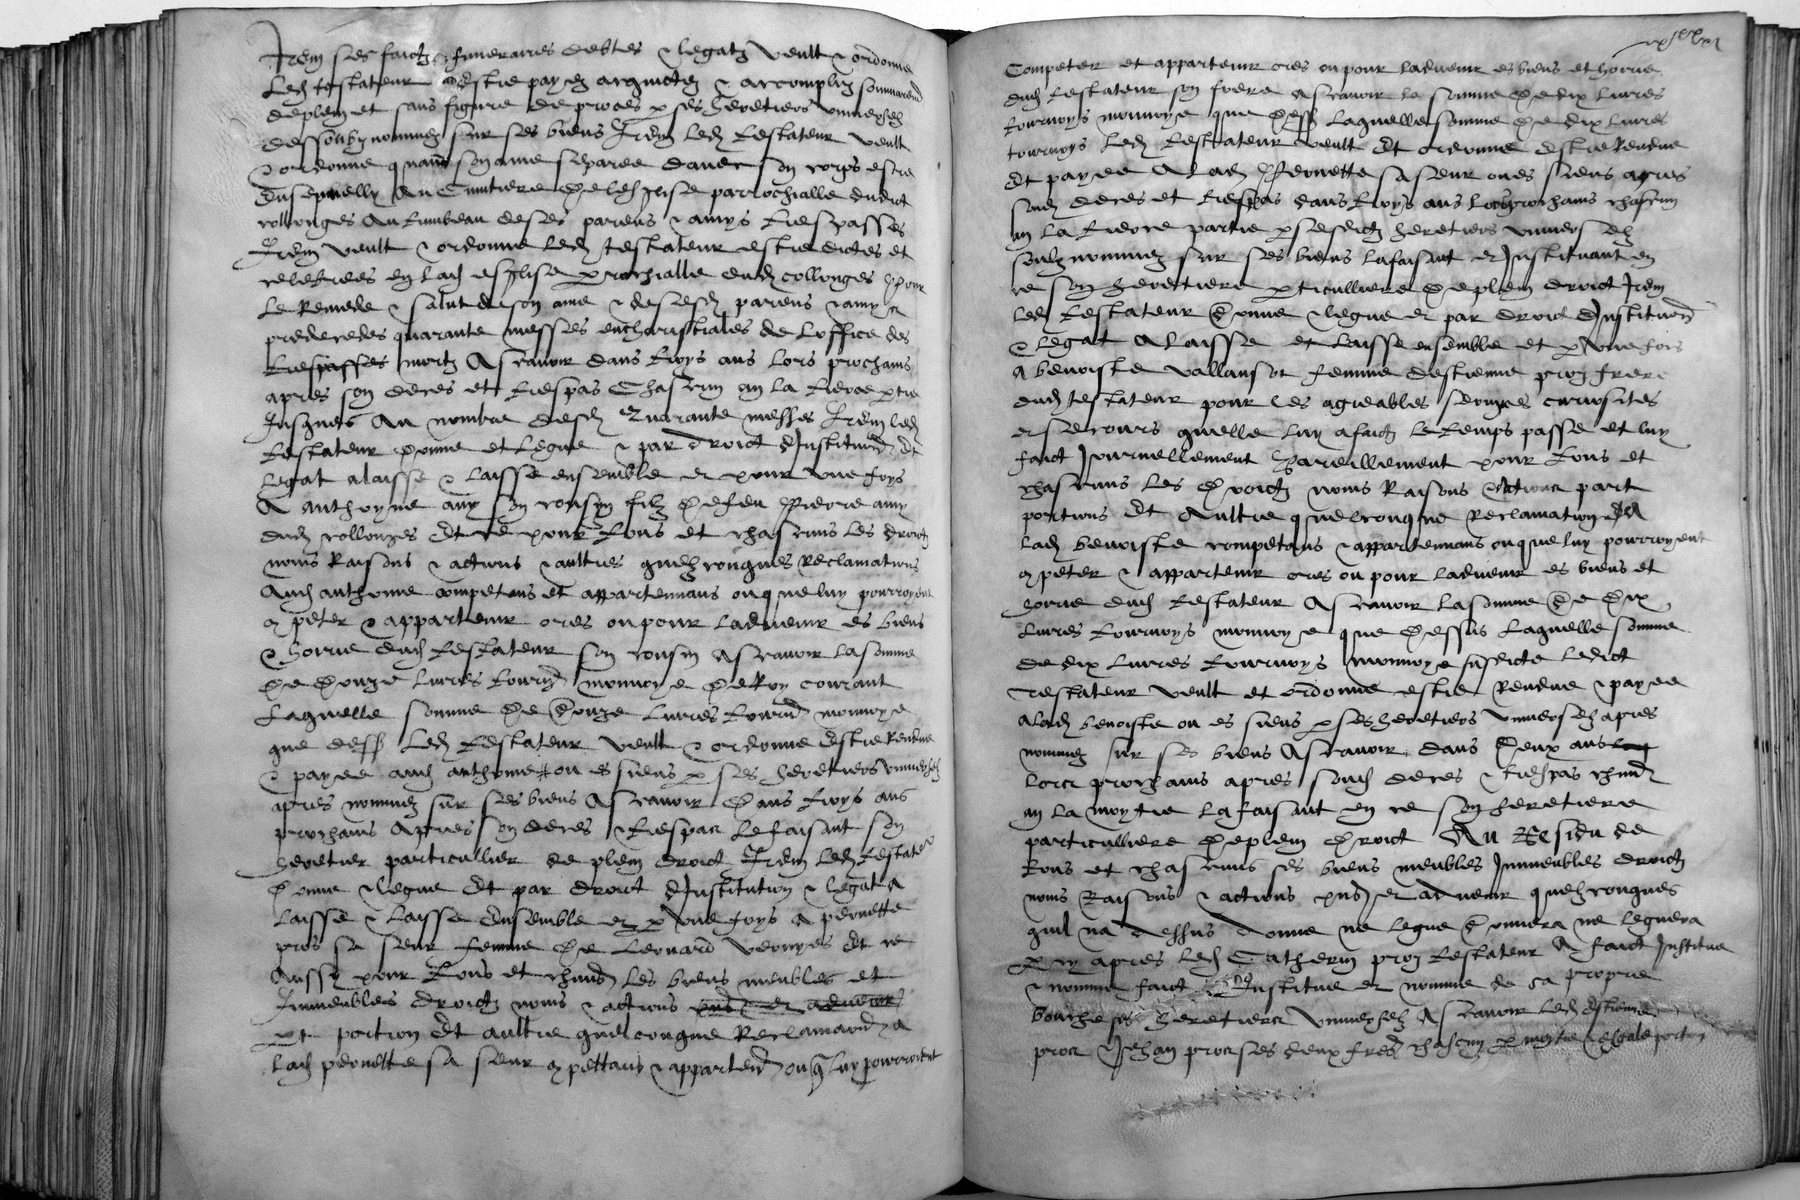 Item ses faictz funeraires debtes & legatz veult & ordonne
Led testateur estre payez acquictez & accomplis sommairemt
de plen et sans figure de proces p ses heretiers universelz
dessoubz nommez sur ses biens Item led testateur veult
& ordonne quant son ame separee davec son corps estre
Ensepvelly Au Cimitiere de lesglise parrochialle dudict
collonges Au tumbeau de ses parens & amys trespasses
Item veult & ordonne led testateur estre dictes et
celebrees en lad esglise parrochialle dud collonges pour
Le Remede & salut de son ame & de sesd parens & amys
predecedes quarante messes eucharistiales de loffice des
trespasses mortz Ascavoir dans troys ans lors prochains
apres son deces et trespas Chascun an la tierce partie
Jusques Au nombre desd Quarante messes Item led
testateur donne et legue & par droict dInstitution et
legat a laisse & laisse ensemble et pour une foys
A anthoyne amy son cousin filz de feu pierre amy
dud collonges Et ce pour tous et chascuns les droictz
noms Raisons & actions & aultres quelzconques Reclamations
Aud anthoine competans et appartenans ou que luy pourroyent
competer & appartenir ores ou pour ladvenir es biens
& horrie dud testateur son cousin Ascavoir la somme
de douze livres tournois monnoye de Roy courant
Laquelle somme de douze livres tournois monnoye
que dess Led testateur veult & ordonne Estre Rendue
& payee aud anthoine ou es siens p ses heretiers universelz
apres nommez sur ses biens Ascavoir dans troys ans
prochains Apres son deces & trespas le faisant son
heretier particullier de plein droict Item led testateur
donne & legue Et par droict dInstitution & legat A
laisse & laisse Ensemble et p une foys A pernette
pros sa seur femme de Leonard Et ce
Aussy pour tous et chascuns les biens meubles et
Immeubles droictz noms & actions
part portion Et aultre quelconque Reclamation A
lad pernette sa seur competans & appartenans ou q luy pourroient
Competer et appartenir ores ou pour ladvenir es biens et horrie
dud testateur son frere Ascavoir la somme de dix livres
tournoys monnoye que dess laquelle somme de dix livres
tournoys led testateur veult Et ordonne Estre Rendue
Et payee A lad pernette sa seur ou es siens apres
sond deces et trespas dans troys ans lors prochains chascun
an la tierce partie p sesdictz heretiers universelz
soubz nommez sur ses biens la faisant et Instituant en
ce son heretiere particulliere de plein droict Item
led testateur donne & legue et par droict dInstitution
& legat A laisse et laisse ensemble et p une fois
A benoiste vallansot femme destienne pros frere
dud testateur pour les agreables services curiosites
et secours quelle luy a faictz le temps passe et luy
faict Journellement pareillement pour tous et
chascuns les droictz noms Raisons actions part
portions Et aultre quelconque Reclamation A
lad benoiste competans & appartenans ou que luy pourroyent
competer & appartenir ores ou pour ladvenir es biens et
horrie dud testateur Ascavoir la somme de dix
livres tournoys monnoye que dessus Laquelle somme
de dix livres tournoys monnoye susdicte ledict
testateur veult et ordonne estre Rendue & payee
a lad benoiste ou es siens p ses heretiers universelz apres
nommez sur ses biens Ascavoir dans deux ans
lors prochains apres sond deces & trespas chascun
an la moytie la faisant en ce son heretiere
particulliere de plein droict Au Residu de
tous et chascuns ses biens meubles Immeubles droictz
noms Raisons & actions pns et advenir quelzconques
quil na dessus donne ne legue donnera ne leguera
p cy apres led Catherin pros testateur A faict Institue
& nomme faict Institue et nomme de sa propre
bouche ses heretiers universelz Ascavoir led estienne
pros & Jehan pros ses deux freres chascun p moytie & esgale portion